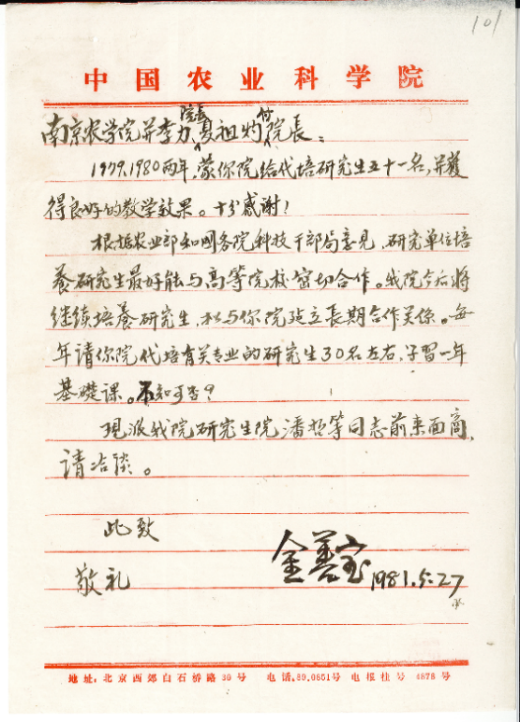 101
中国农业科学院
院长 付
南京农学院并李力夏祖灼院長：
1979.1980两年，蒙你院给代培研究生五十一名，并获
得良好的教学效果。十分感谢！
根据农业部和国务院科技干部局意见，研究单位培
养研究生最好能与高等院校密切合作。我院今后将
继续培养研究生，拟与你院建立長期合作关係。每
年请你院代培有关专业的研究生30名左右，学習一年
基礎课。不知可否？
现派我院研究生院潘哲等同志前来面商，
请洽谈。
此致
敬礼
金善宝 1981.5.27
地址：北京西郊白石桥路30号 电话.89.0851号 电报挂号 4878号